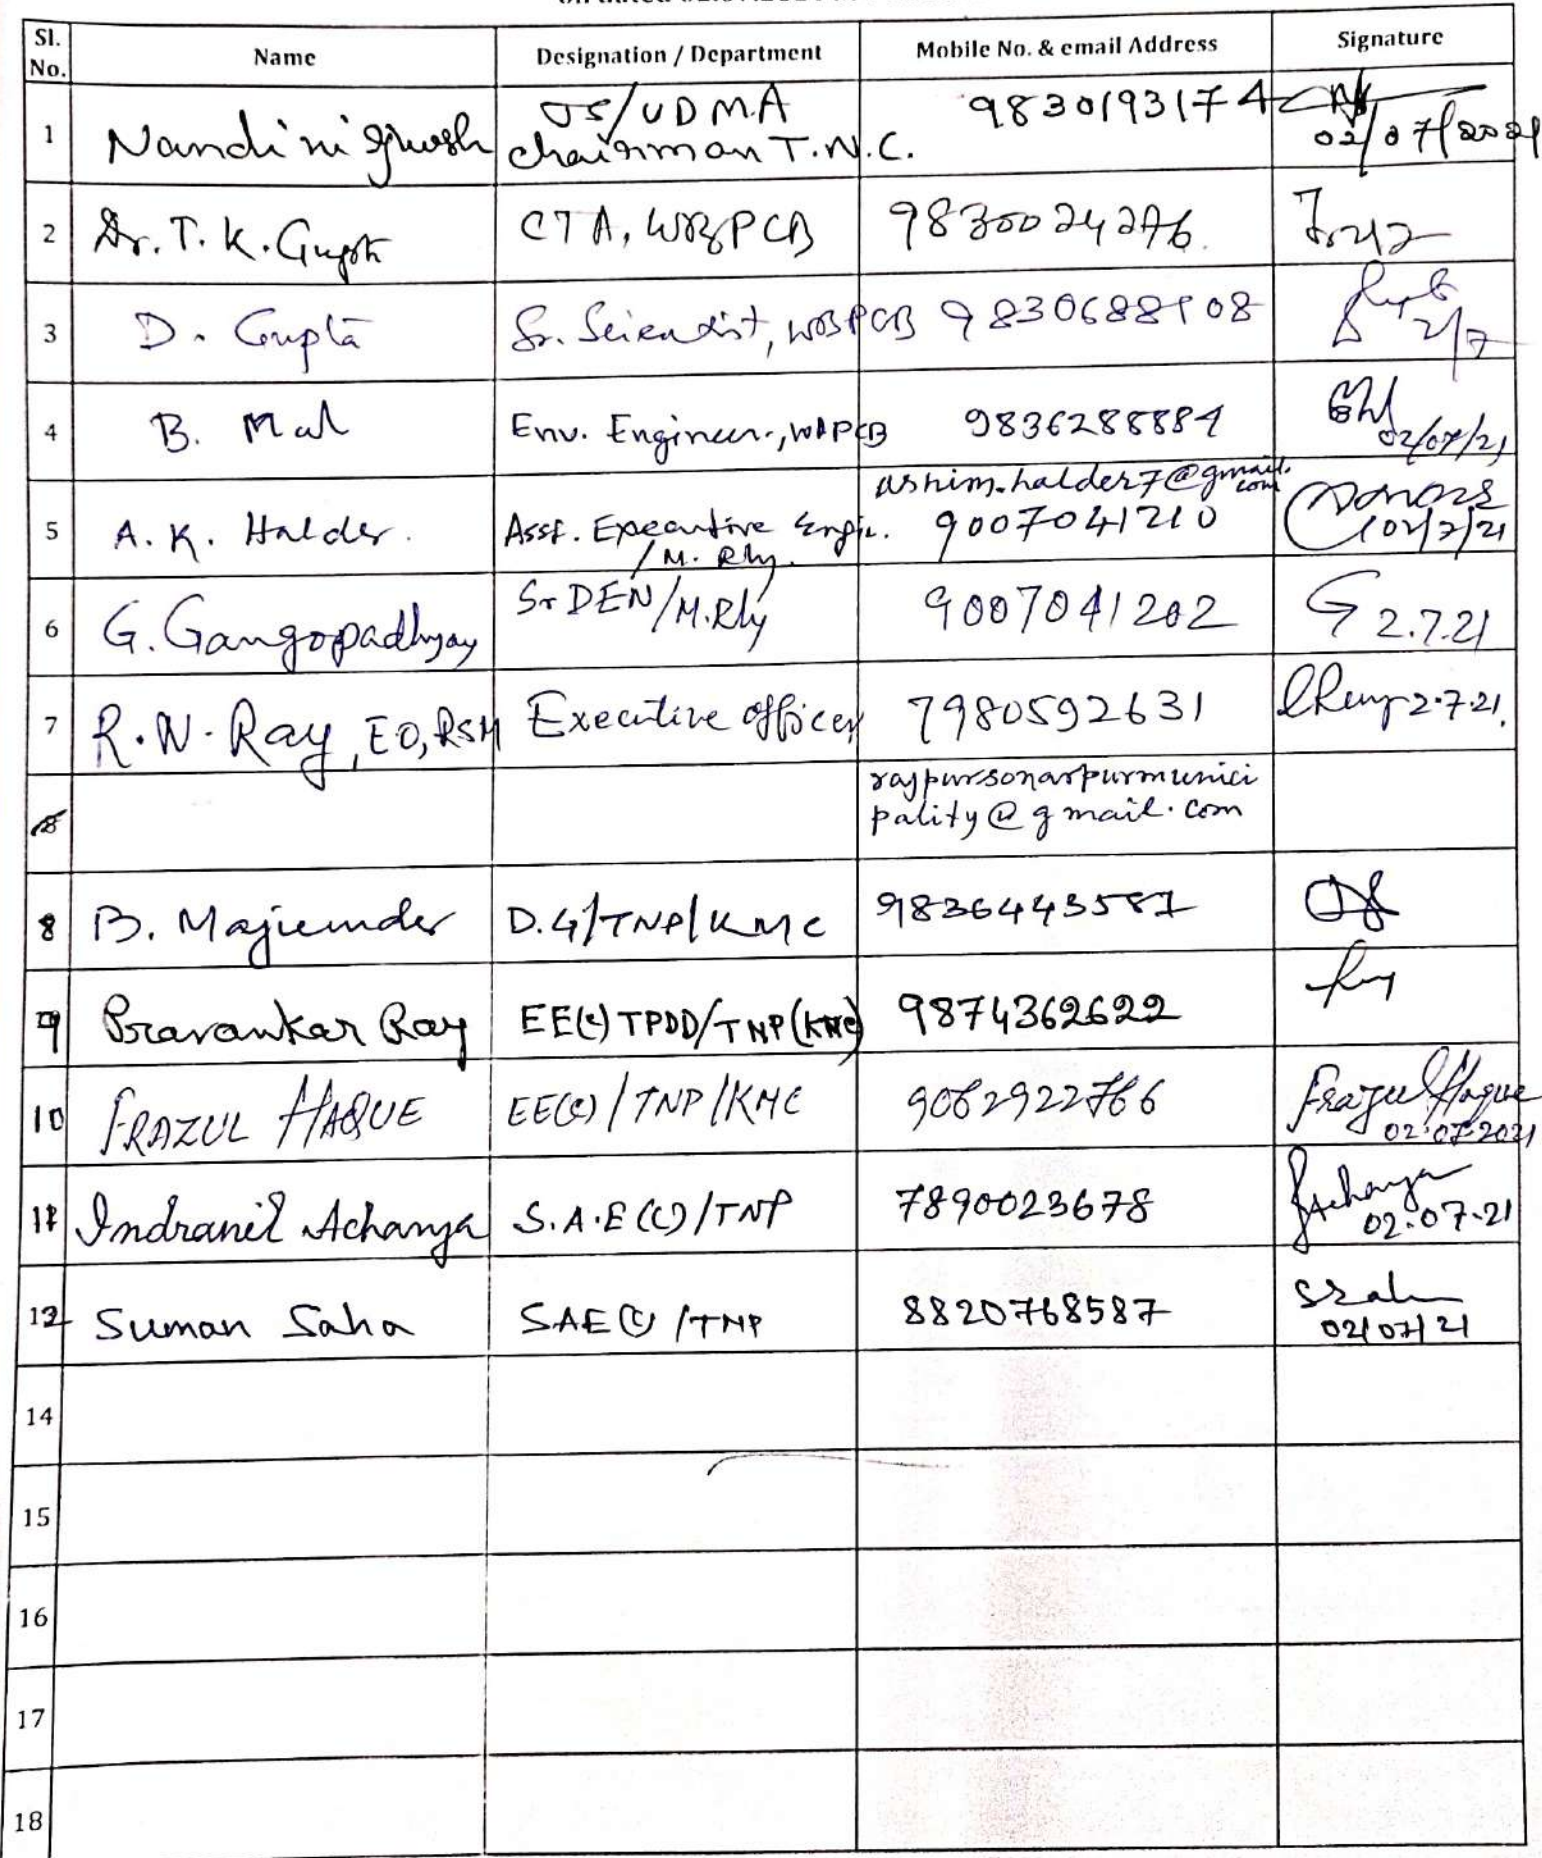 Sl. No. Name Designation / Department Mobile No. & email Address Signature
1 Nandini Ghosh JS/UDMA 9830193174
Chairman T.N.C. 02/07/2021
2 Dr. T. K. Gupta CTA, WBPCB 9830024276
3 D. Gupta Sr. Scientist, WBPCB 9830688908 2/7
4 B. Mal Env. Engineer, WBPCB 9836288884 02/07/21
ashim.halder7@gmail.com
5 A. K. Halder. Asst. Executive Engr. 9007041210 02/7/21
/M. Rly.
6 G. Gangopadhyay Sr DEN/M.Rly 9007041202 G 2.7.21
7 R.N. Ray, EO, RSM Executive officer 7980592631 2.7.21.
8 rajpursonarpurmunici
pality@gmail.com
8 B. Majumder D.G/TNP/KMC 9836443581
9 Pravankar Ray EE(C) TPDD/TNP (KMC) 9874362622
10 FRAZUL HAQUE EE(C)/TNP/KMC 9062922766 Frazul Haque
02.07.2021
11 Indranil Acharya S.A.E(C)/TNP 7890023678 Acharya
02.07.21
12 Suman Saha SAE(C)/TNP 8820768587 SSaha
02/07/21
14
15
16
17
18